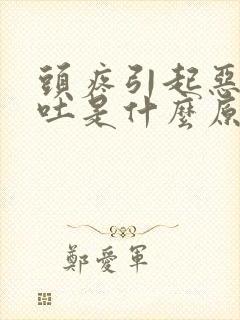 頭疼引起惡
吐是什麼原
鄭愛軍